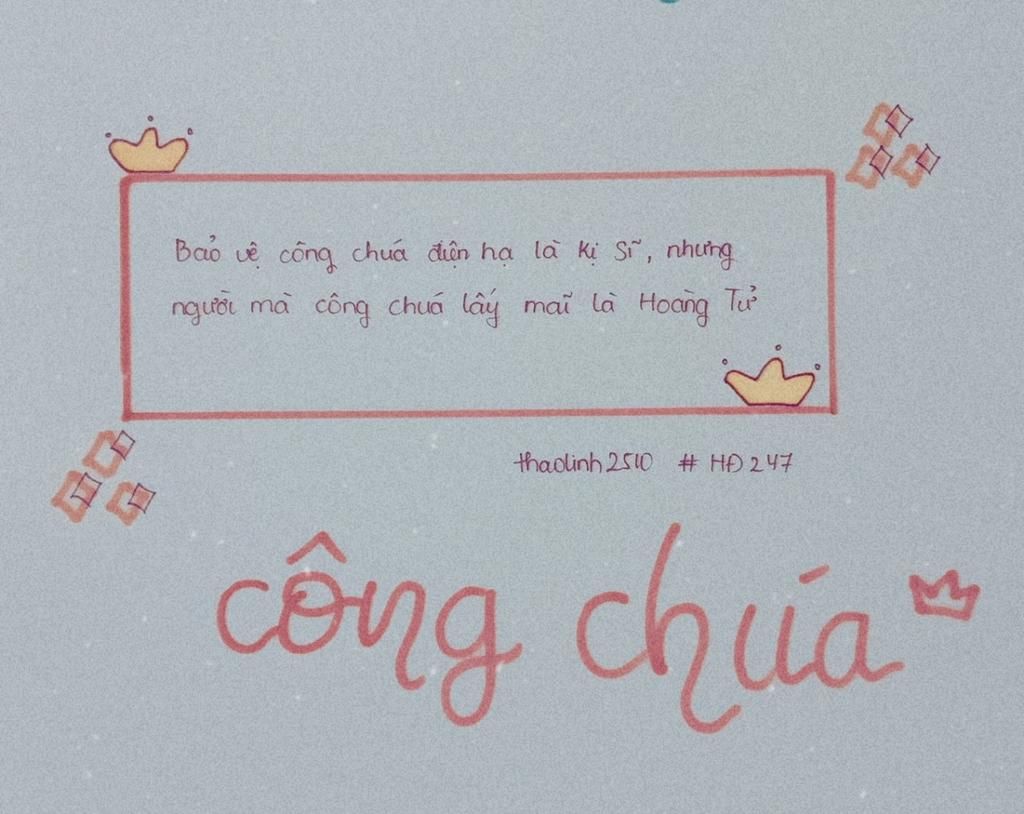 Bảo vệ công chúa điện hạ là kị sĩ, nhưng
người mà công chúa lấy mãi là Hoàng Tử
thaolinh2510 # HĐ247
công chúa